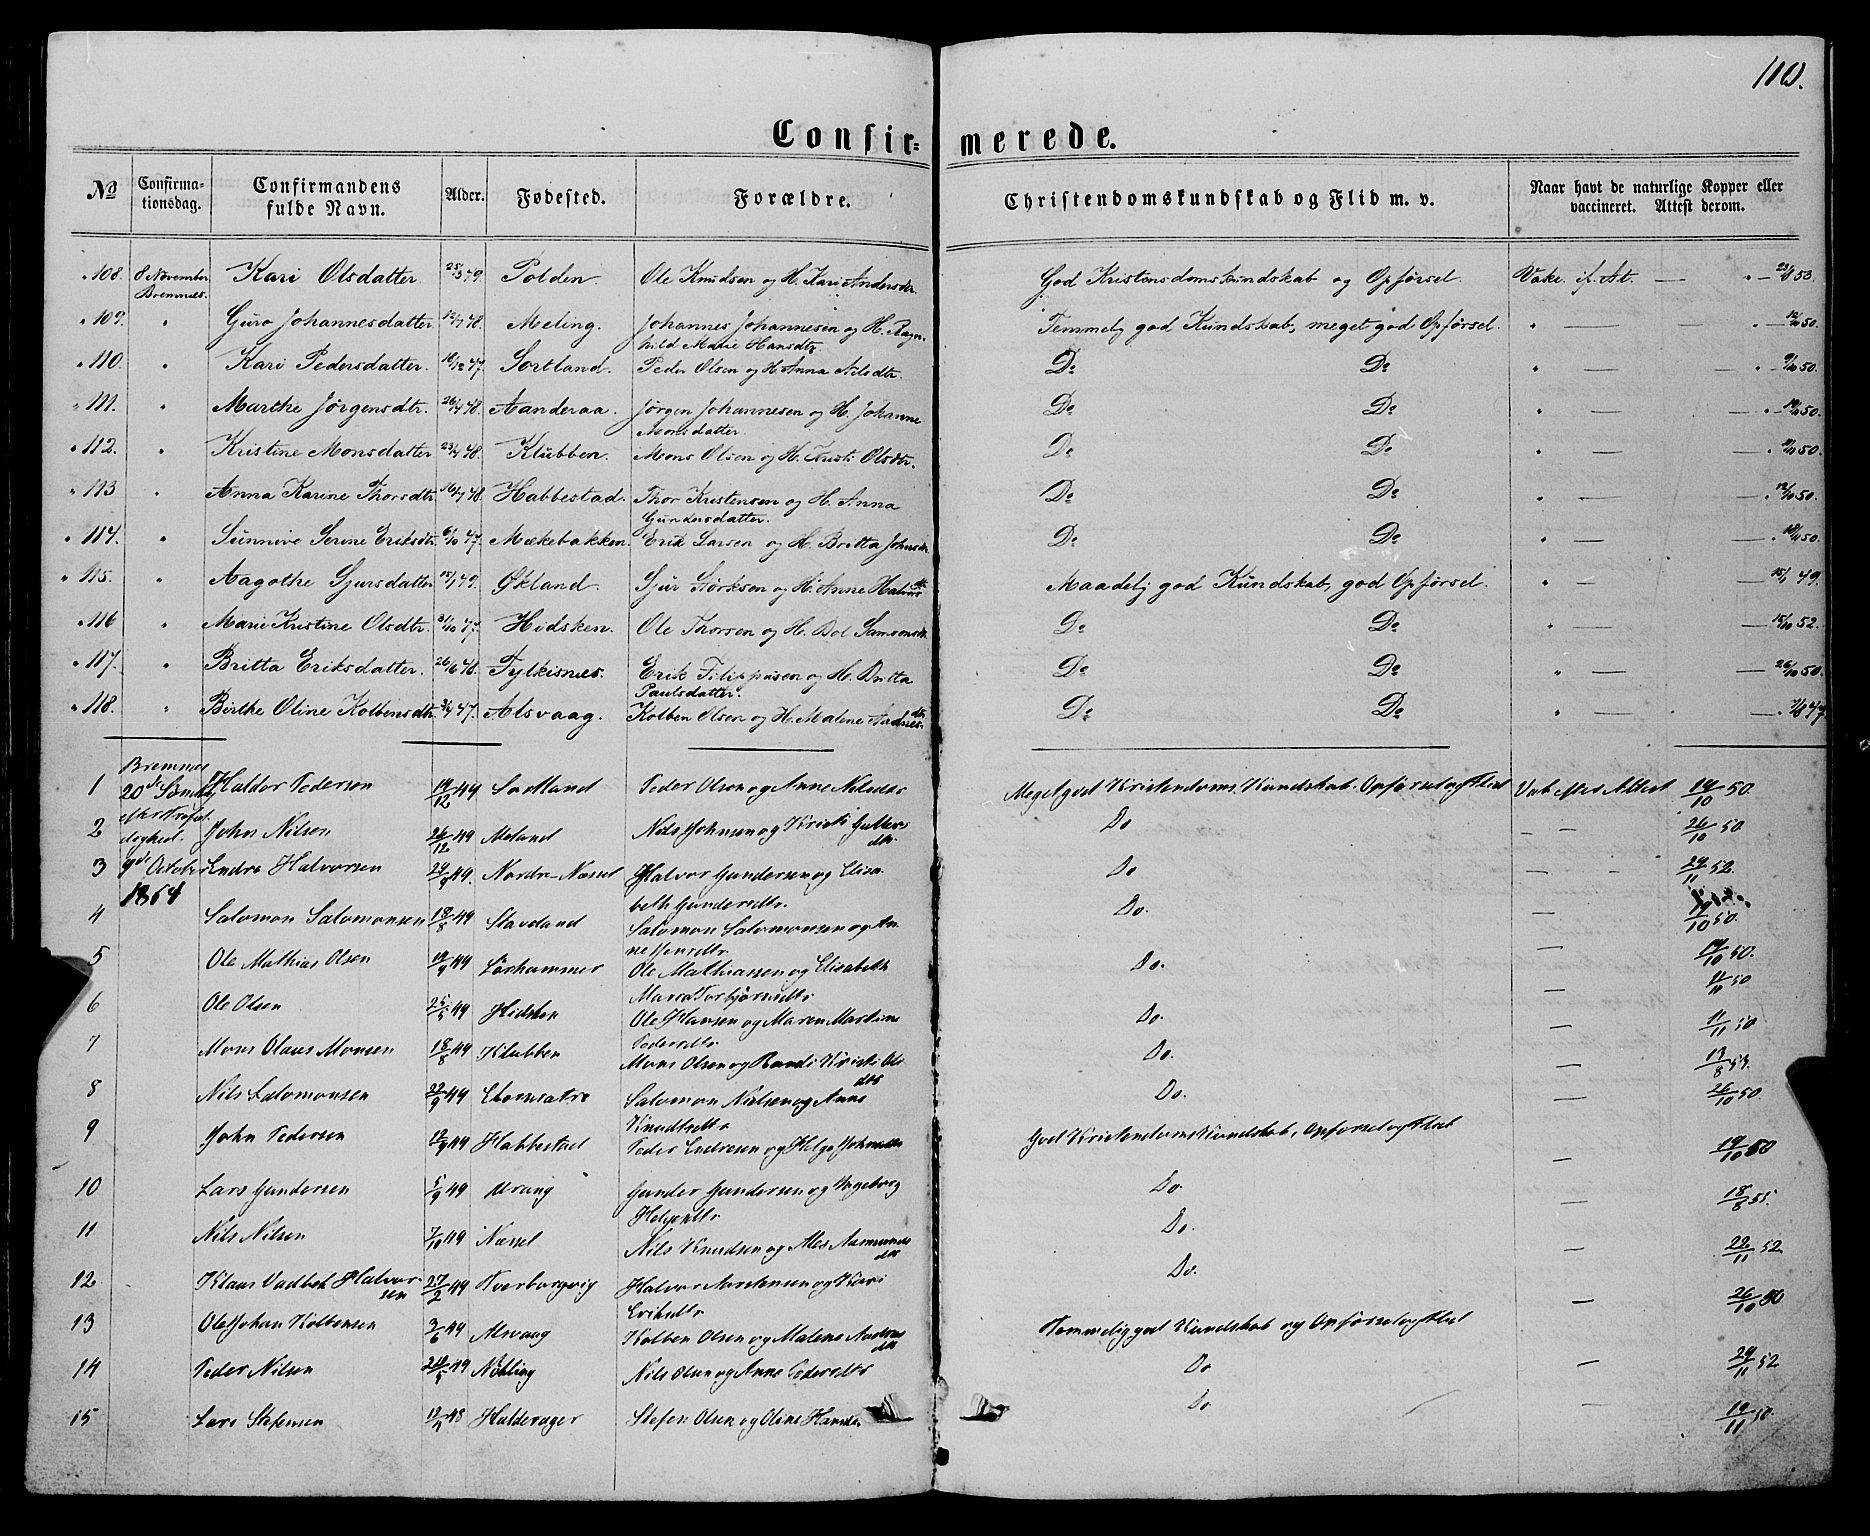 110.
Confir= merede.
No Confirma- Confirmandens Alder. Fødested. Forældre. Christendomskundskab og Flid m. v. Naar havt de naturlige Kopper eller
tionsdag. fulde Navn. vaccineret. Attest derom.
" 108. 8 November Kari Olsdatter 25/3 49. Polden. Ole Knudsen og H. Kari Andersdtr. God Kristendomskundskab og Opførsel. Vakc. if. At. — " — 53.
Bremnes.
" 109. " Guro Johannesdatter 12/7 48. Meling. Johannes Johannesen og H. Ragn- Temmelig god Kundskab, meget god Opførsel. " — 12/10 50.
hild Marie Hansdtr
" 110. " Kari Pedersdatter. 18/12 47. Sortland. Peder Olsen og H. Anna Nilsdtr. Do Do " — " — 9/10 50.
" 111. " Marthe Jørgensdtr. 26/4 48. Aanderaa. Jørgen Johannesen og H. Johanne Do Do " — " — 50.
Monsdatter.
" 112. " Kristine Monsdatter 23/4 48. Klubben. Mons Olsen og H. Kristi Olsdtr. Do Do " — " 50.
" 113 " Anna Karine Thorsdtr. 16/7 48. Habbestad. Thor Kristensen og H. Anna Do Do " — " 12/10 50.
Gundersdatter.
" 114. " Sunnive Serine Eriksdtr. 6/10 47. Mækebakken. Erik Larsen og H. Britta Johnsdtr Do Do " — " 18/11 50.
" 115. " Aagothe Sjursdatter 49. Økland. Sjur Størksen og H. Anne Halvors dtr. Maadelig god Kundskab, god Opførsel. " — 15/1 49.
" 116 " Marie Kristine Olsdtr. 31/10 47. Hidsken. Ole Thorsen og H. Bol Samsonsdtr. Do Do " — 15/10 52.
" 117. " Britta Eriksdatter. 26/6 48. Fylkisnes. Erik Filippusen og H. Britta Do Do " — 26/10 50.
Paulsdatter.
" 118. " Birthe Oline Kolbensdtr. 47. Alsvaag. Kolben Olsen og H. Malene Andreas dtr. Do Do " — "
Bremnes
1 20de Søndag Haldor Pedersen 14/12 49 Sortland Peder Olsen og Anna Nilsdtr Meget god Kristendoms Kundskab. Opførsel og Flid Vak efter Attest 19/10 50.
efter Trefol
2 dighed. John Nilsen 26/12 49 Meland Nils Johnsen og Kristi Gutterms Do — — 26/10 50.
dtr.
3 9de October Endre Halvorsen 24/9 49. Nordre Næssel Halvor Gundersen og Elisa Do — - 29/11 52.
1864 beth Gundersdtr.
4 Salomon Salomonsen 18/8 49 Stavland Salomon Salomonsen og An Do. — 19/10 50.
ne Jensdtr
5 Ole Mathias Olsen 14/9 49 Lørhammer Ole Mathiassen og Elisabeth Do. — 19/10 50.
Maria Torbjørnsdtr
6 Ole Olsen 25/5 49 Hidsken Ole Hansen og Maren Martine Do. — 11/11 50
Pedersdtr
7 Mons Olaus Monsen 18/8 49 Klubben Mons Olsen og Randi Kristi Ols Do. — 11/11 50
dtr
8 Nils Salomonsen 22/9 49 Salomon Nielsen og Anne Do. — 13/8 53.
Knudtsdtr 26/10 50.
9 John Pedersen 12/9 49 Habbestad Peder Endresen og Helga Johnsdtr God Kristendoms Kundskab, Opførsel og Flid — 19/10 50
10 Lars Gundersen 5/9 49 Urang Gunder Gundersen og Ingeborg Do. — 18/8 55.
Helgesdtr
11 Nils Nilsen 7/10 49 Næssel Nils Knudsen og Ales Aamunds Do. — 22/11 52
dtr
12 Klaus Vadbek Halvor- 27/2 49 Halvor Aarstensen og Kari Do. — 26/10 50
sen Eriksdtr
13 Ole Johan Kolbensen 3/6 49 Alsvaag Kolben Olsen og Malene Andreas Temmelig god Kundskab og Opførsel og Flid
dtr
14 Peder Nilsen 49 Nils Olsen og Anna Pedersdtr Do — 29/11 52
15 Lars Stefensen 48 Halderager Stefen Olsen og Oline Hansdtr Do. - 19/11 50.